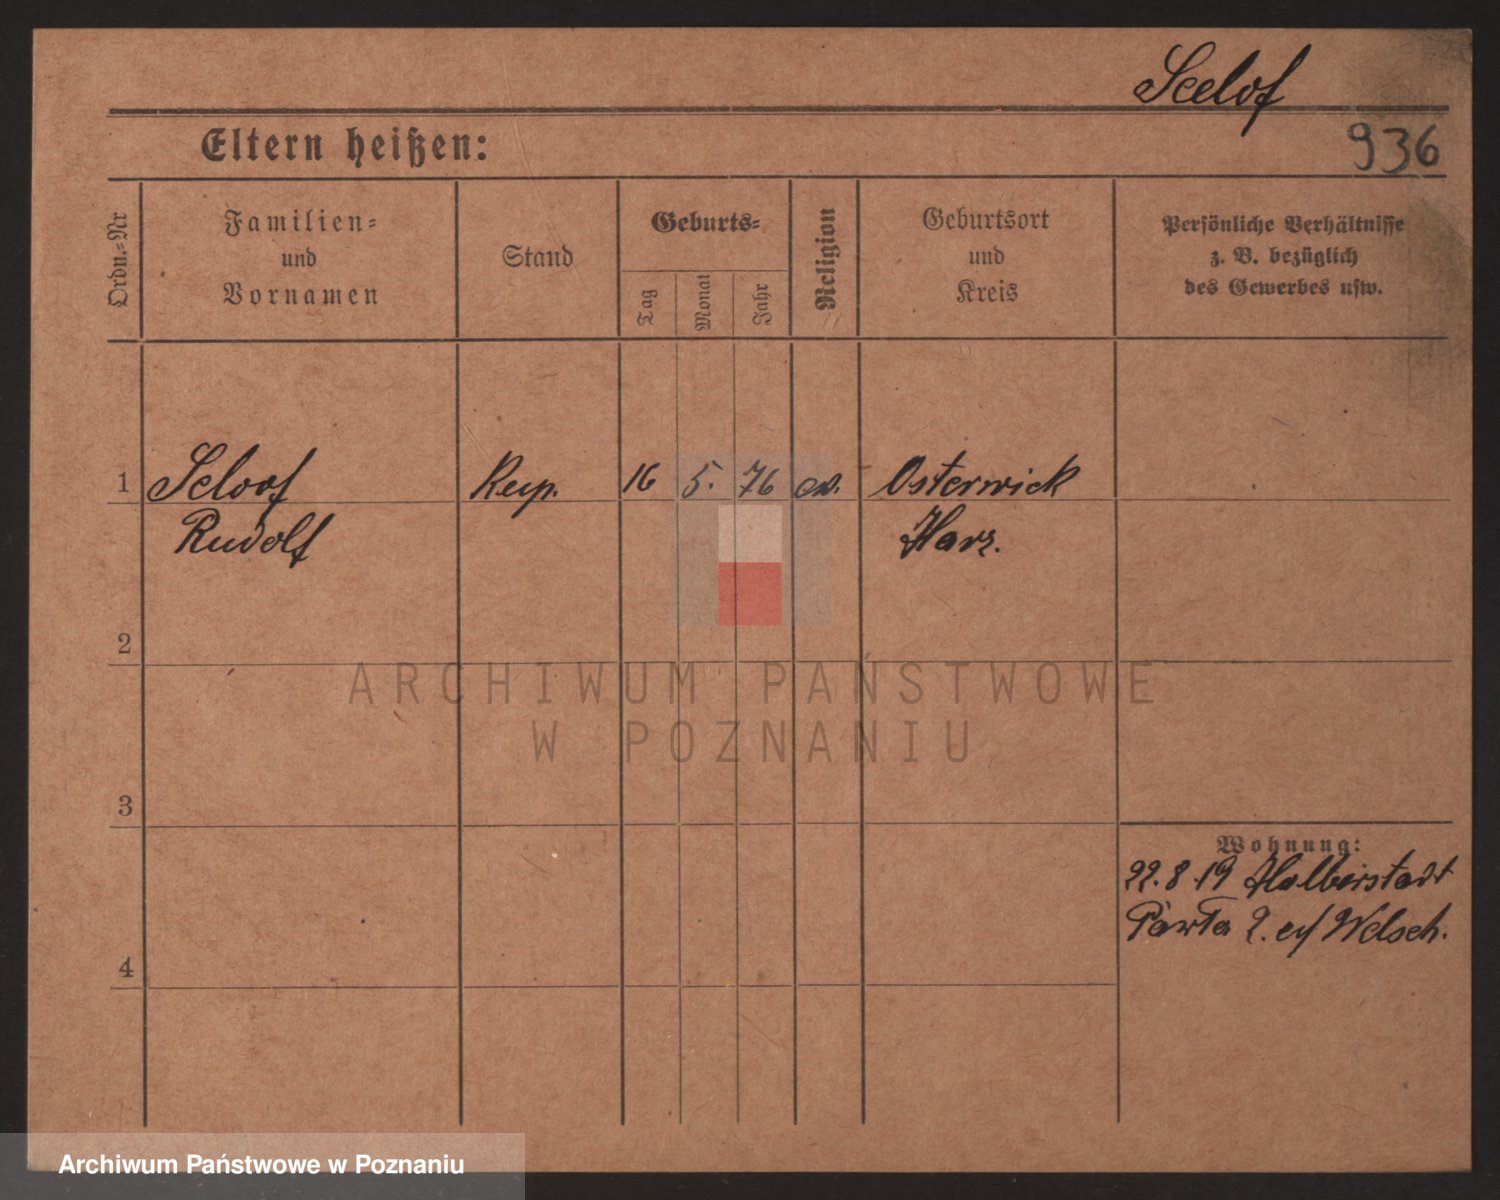 Seelof
Eltern heißen:
936
Ordn.=Nr
Familien=
und
Vornamen
Stand
Geburts=
Tag
Monat
Jahr
Religion
Geburtsort
und
Kreis
Persönliche Verhältnisse
z. B. bezüglich
des Gewerbes usw.
1
Seloof
16
5.
76
ev.
Osterwick
Rudolf
Harz.
2
ARCHIWUM PAŃSTWOWE
W POZNANIU
3
Wohnung:
22.8.19 Halberstadt
4
Archiwum Państwowe w Poznaniu